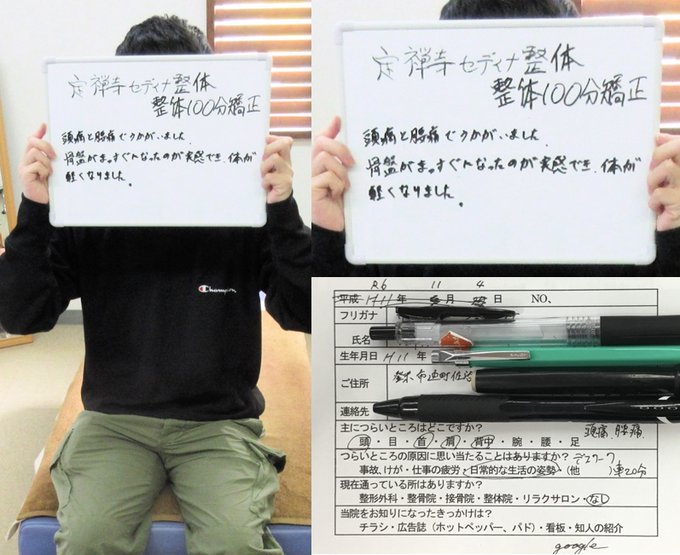 定禅寺セディナ整体
整体100分矯正
頭痛と腰痛でうかがいました.
骨盤がまっすぐになったのが実感でき.体が
軽くなりました。
Champion
定禅寺セディナ整体
整体100分矯正
頭痛と腰痛でうかがいました.
骨盤がまっすぐになったのが実感でき.体が
軽くなりました。
R6 11 4
平成 年 月 日 NO、
フリガナ
氏名
生年月日 H11 年
ご住所
連絡先
主につらいところはどこですか? 頭痛、腰痛
頭・目・首・肩・背中・腕・腰・足
つらいところの原因に思い当たることはありますか? デスクワーク
事故、けが・仕事の疲労・日常的な生活の姿勢・(他 )車20分
現在通っている所はありますか?
整形外科・整骨院・接骨院・整体院・リラクサロン・なし
当院をお知りになったきっかけは?
チラシ・広告誌(ホットペッパー、パド)・看板・知人の紹介
google